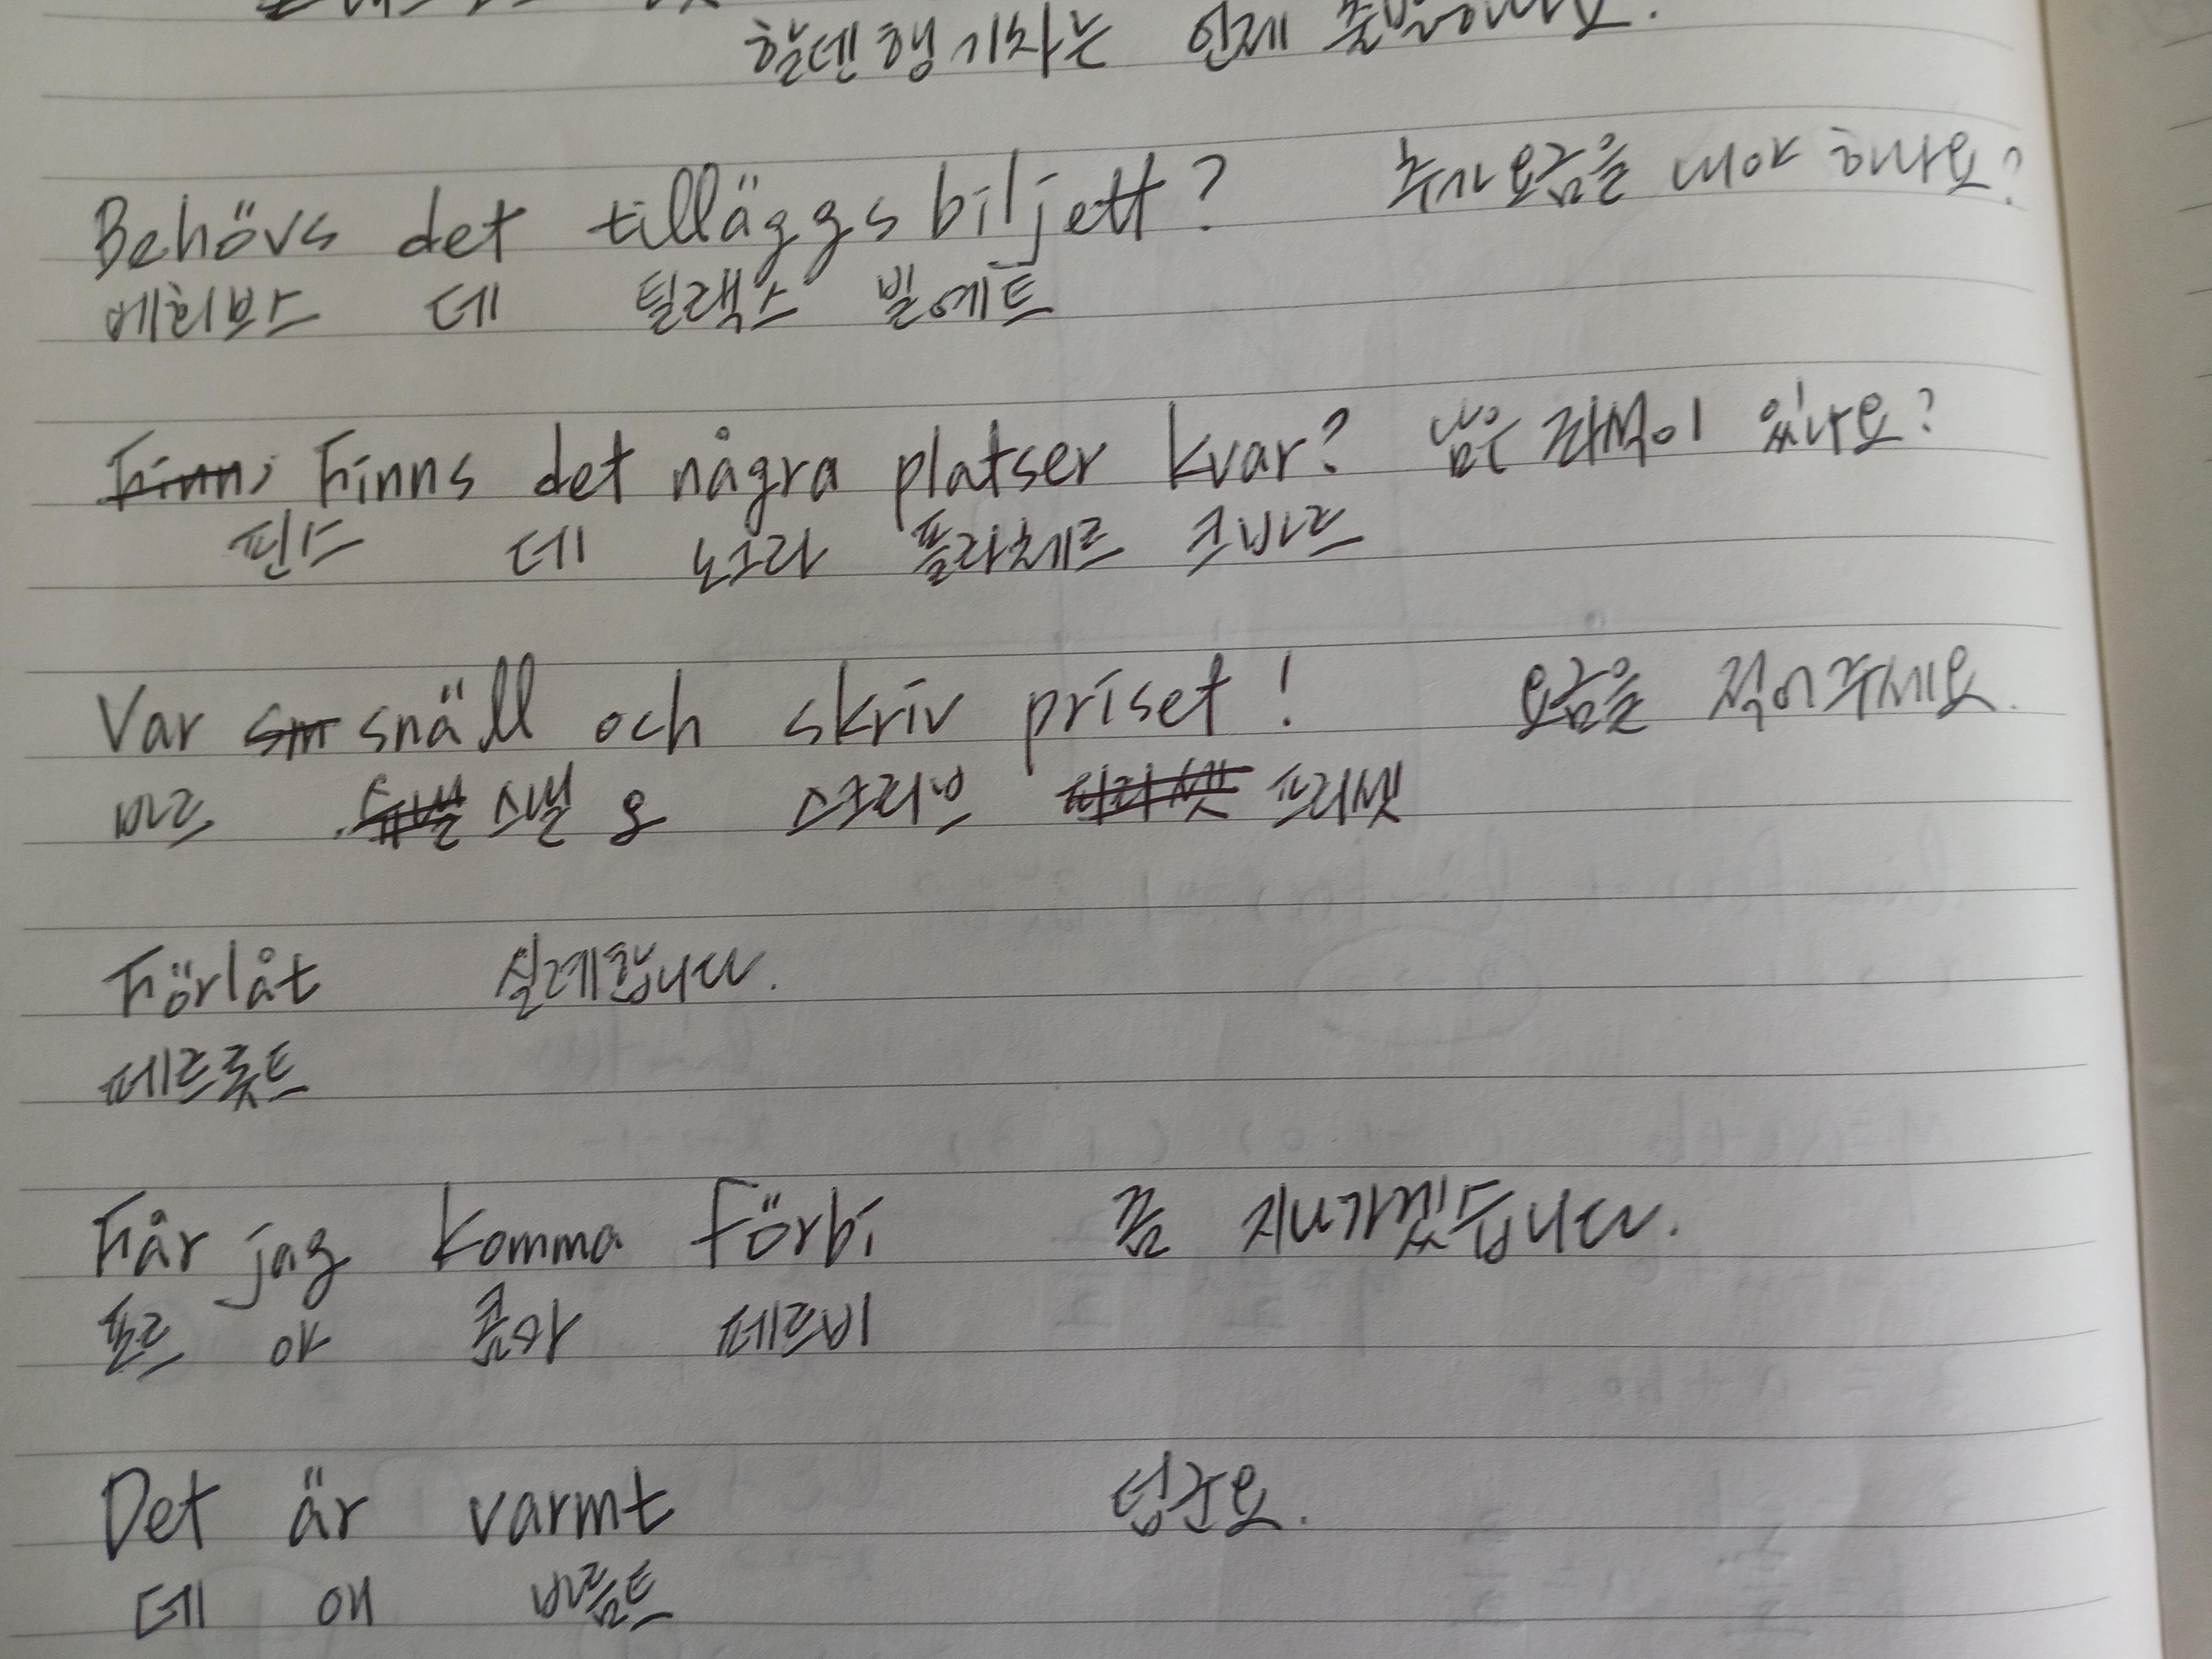 할덴행 기차는 언제 출발하나요.
Behövs det tilläggsbiljett? 추가요금을 내야 하나요?
베회브스 데 틸랙스 빌예트
Finns det några platser kvar? 남은 좌석이 있나요?
핀스 데 노그라 플라체르 크바르
Var snäll och skriv priset! 요금을 적어주세요.
바르 스낼 오 스크리브 프리셋
Förlåt 실례합니다.
페르롯트
Får jag komma förbi 좀 지나가겠습니다.
포르 야 콤마 페르비
Det är varmt 덥군요.
데 애 바름트